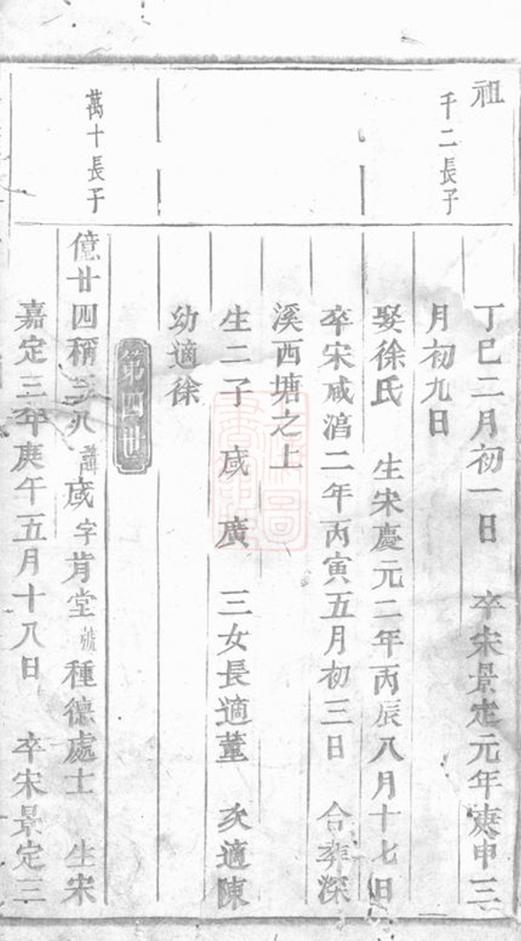 祖
千二長子
丁巳二月初一日 卒宋景定元年庚申三
月初九日
娶徐氏 生宋慶元二年丙辰八月十七日
卒宋咸淳二年丙寅五月初三日 合葬深
溪西塘之上
生二子 宬 廣 三女長適董 次適陳
幼適徐
第四世
萬十長子
億廿四稱三八 諱宬字肯堂號種德處士 生宋
嘉定三年庚午五月十八日 卒宋景定三